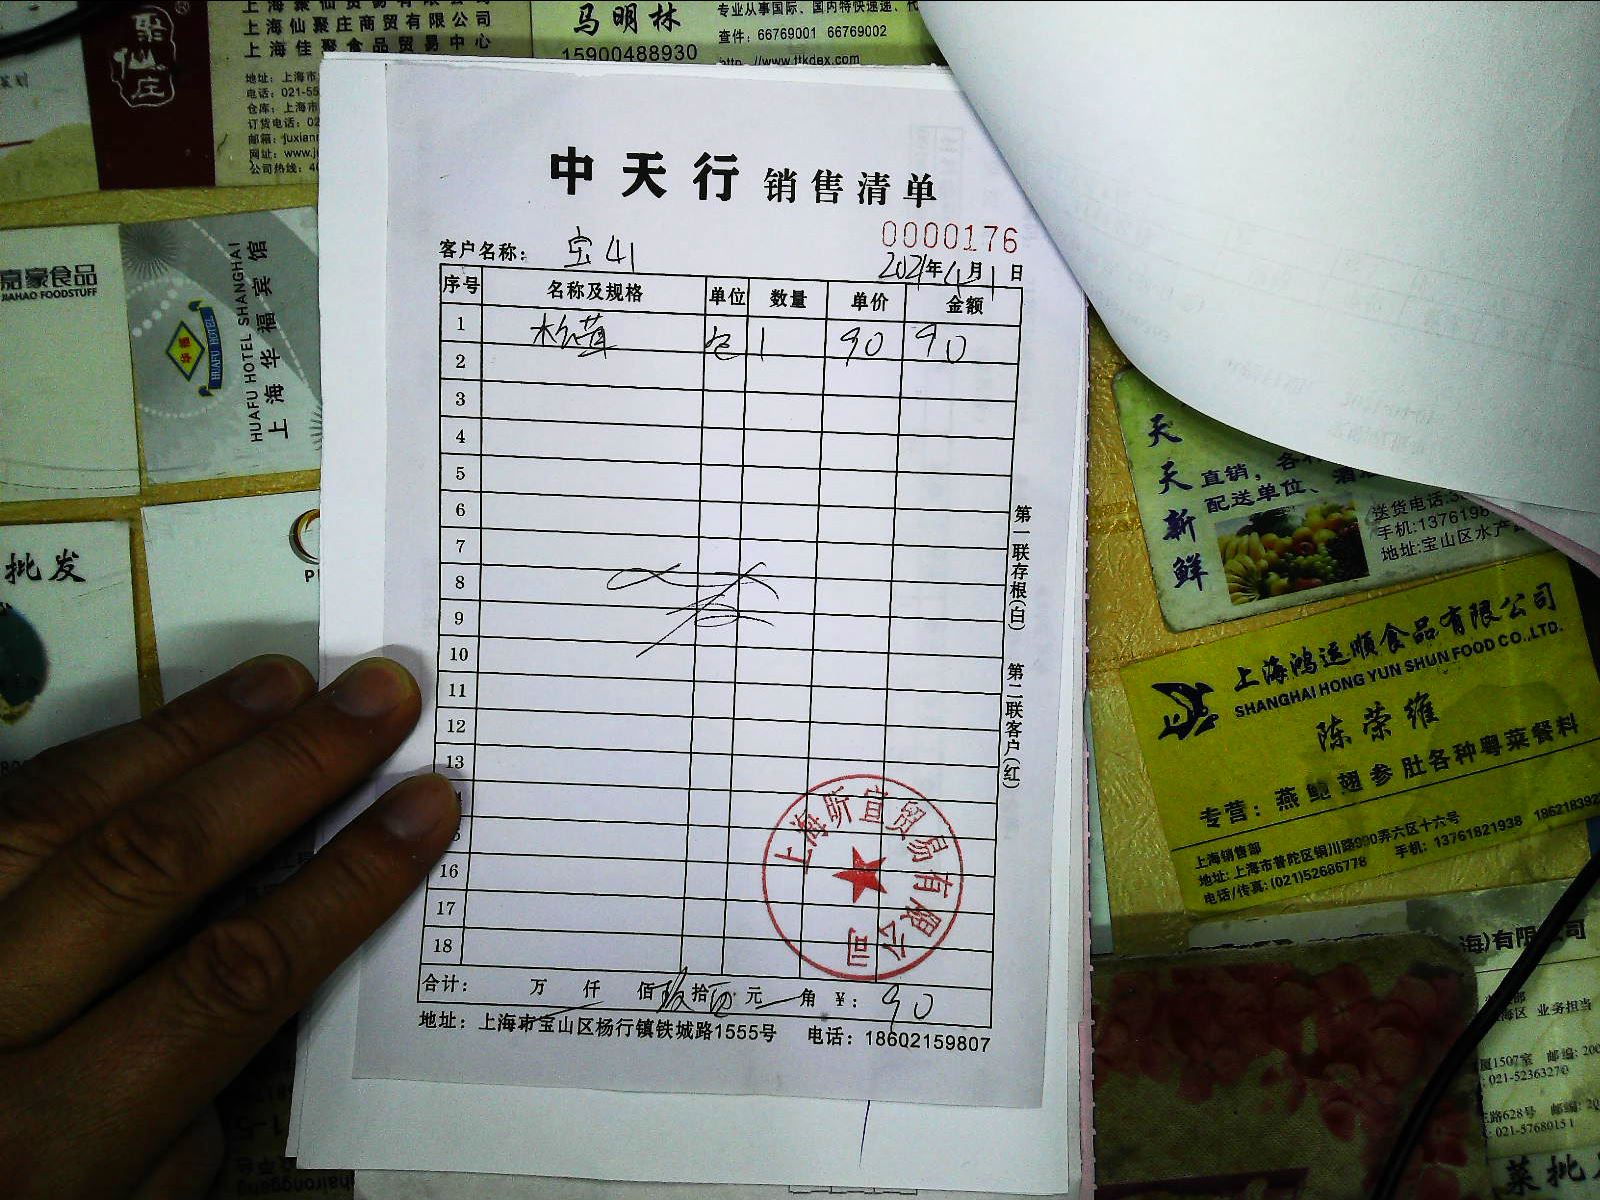 上海聚仙贸易有限公司
上海仙聚庄商贸有限公司
上海佳聚食品贸易中心
聚仙庄
地址：上海市
电话：021-55
仓库：上海市
订货电话：02
邮箱：juxian
网址：www.j
公司热线：4
马明林
15900488930
专业从事国际、国内特快速递、代
查件：66769001 66769002
http://www.ttkdex.com
嘉豪食品
JIAHAO FOODSTUFF
HUAFU HOTEL
HUAFU HOTEL SHANGHAI
上海华福宾馆
批发
中天行 销售清单
0000176
客户名称： 宝山
2021年4月1日
序号 名称及规格 单位 数量 单价 金额
1 松茸 包 1 90 90
2
3
4
5
6
7
8
9
10
11
12
13
16
17
18
合计： 万 仟 佰 玖拾 元 角 ￥： 90
地址：上海市宝山区杨行镇铁城路1555号 电话：18602159807
第一联存根(白)
第二联客户(红)
上海昕宜贸易有限公司
天天新鲜
直销，各
配送单位、酒
送货电话:
手机:1376198
地址:宝山区水产
上海鸿运顺食品有限公司
SHANGHAI HONG YUN SHUN FOOD CO.,LTD.
陈荣维
专营：燕鲍翅参肚各种粤菜餐料
上海销售部
地址：上海市普陀区铜川路990弄六区十六号
电话/传真：(021)52686778 手机：13761821938 186218392
海)有限公司
业务担当
厦1507室 邮编：200
：021-52363270
路628号 邮编：20
：021-57680151
菜批